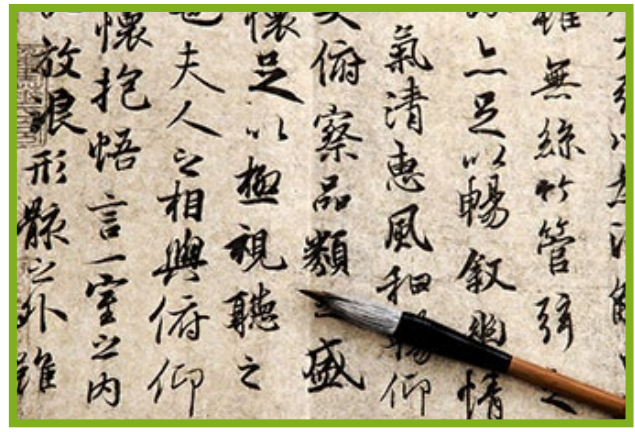 雖無絲竹管弦之
亦足以暢敘幽情
氣清惠風和暢仰
俯察品類之盛
懷足以極視聽之
也夫人之相與俯仰
懷抱悟言一室之內
放浪形骸之外雖